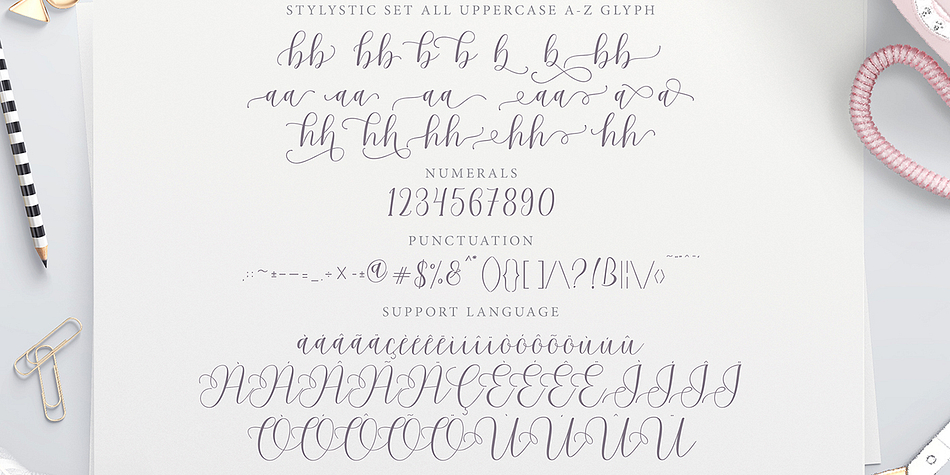 STYLYSTIC SET ALL UPPERCASE A-Z GLYPH
bb bb b b b b bb
aa aa aa aa a a
hh hh hh hh hh
NUMERALS
1234567890
PUNCTUATION
@ # $ % & ^ * ( ) { } [ ] / \ ? ! ß | ¦ \ / ‹ ›
SUPPORT LANGUAGE
àáâãäçèéêëìíîïòóôõöùúüû
ÀÁÂÃÄÇÈÉÊËÌÍÎÏ
ÒÓÔÕÖÙÚÛÜ